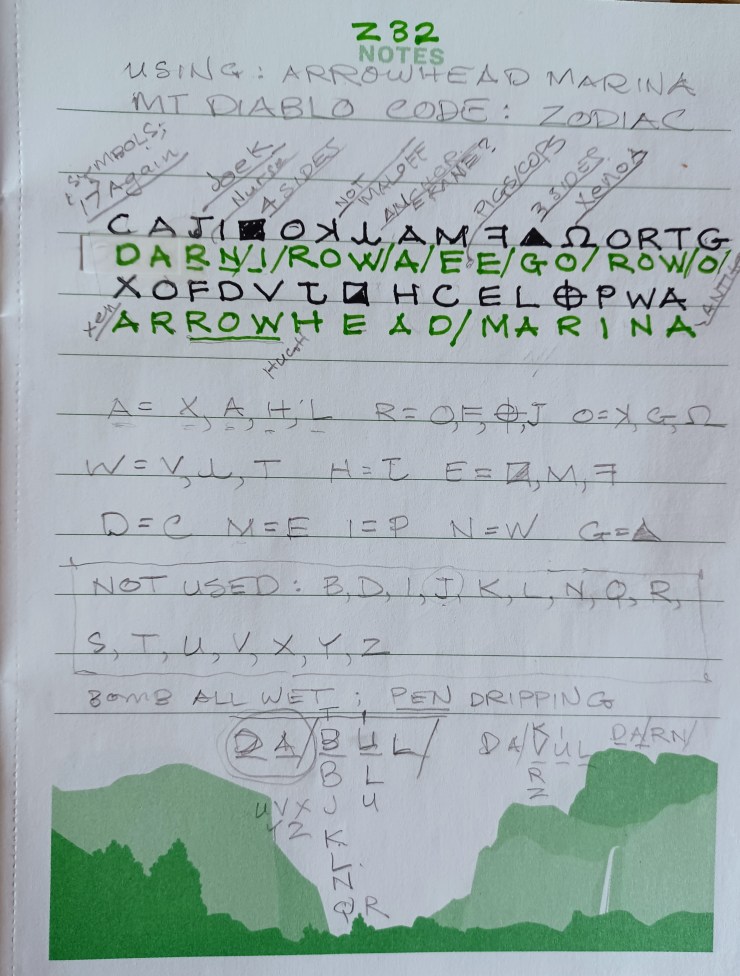 Z32
NOTES
USING: ARROWHEAD MARINA
MT DIABLO CODE: ZODIAC
SYMBOLS;
17 Again
JOEK
Nurse
4 SIDES
NOT
MALOFF
ANCHOR
CRANE?
PIGS/COPS
3 SIDES
Xenoph
C A J I ◪ O ꓘ ⅄ A M ꟻ ▲ Ω O R T G
D A R N / I / R O W / A / E E / G O / R O W / O /
X O F D V Ʇ ◪ H C E L ⌖ P W A
A R R O W H E A D / M A R I N A
Xen
HUGH
A = X, A, H, L R = O, F, ⌖, J O = ꓘ, G, Ω
W = V, ⅄, T H = Ʇ E = ◪, M, ꟻ
D = C M = E I = P N = W G = ▲
NOT USED: B, D, I, J, K, L, N, Q, R,
S, T, U, V, X, Y, Z
BOMB ALL WET; PEN DRIPPING
D A / B U L / D A / V U L D A / R N /
B L R
U V X J U Z
Y Z K
L
N
Q R